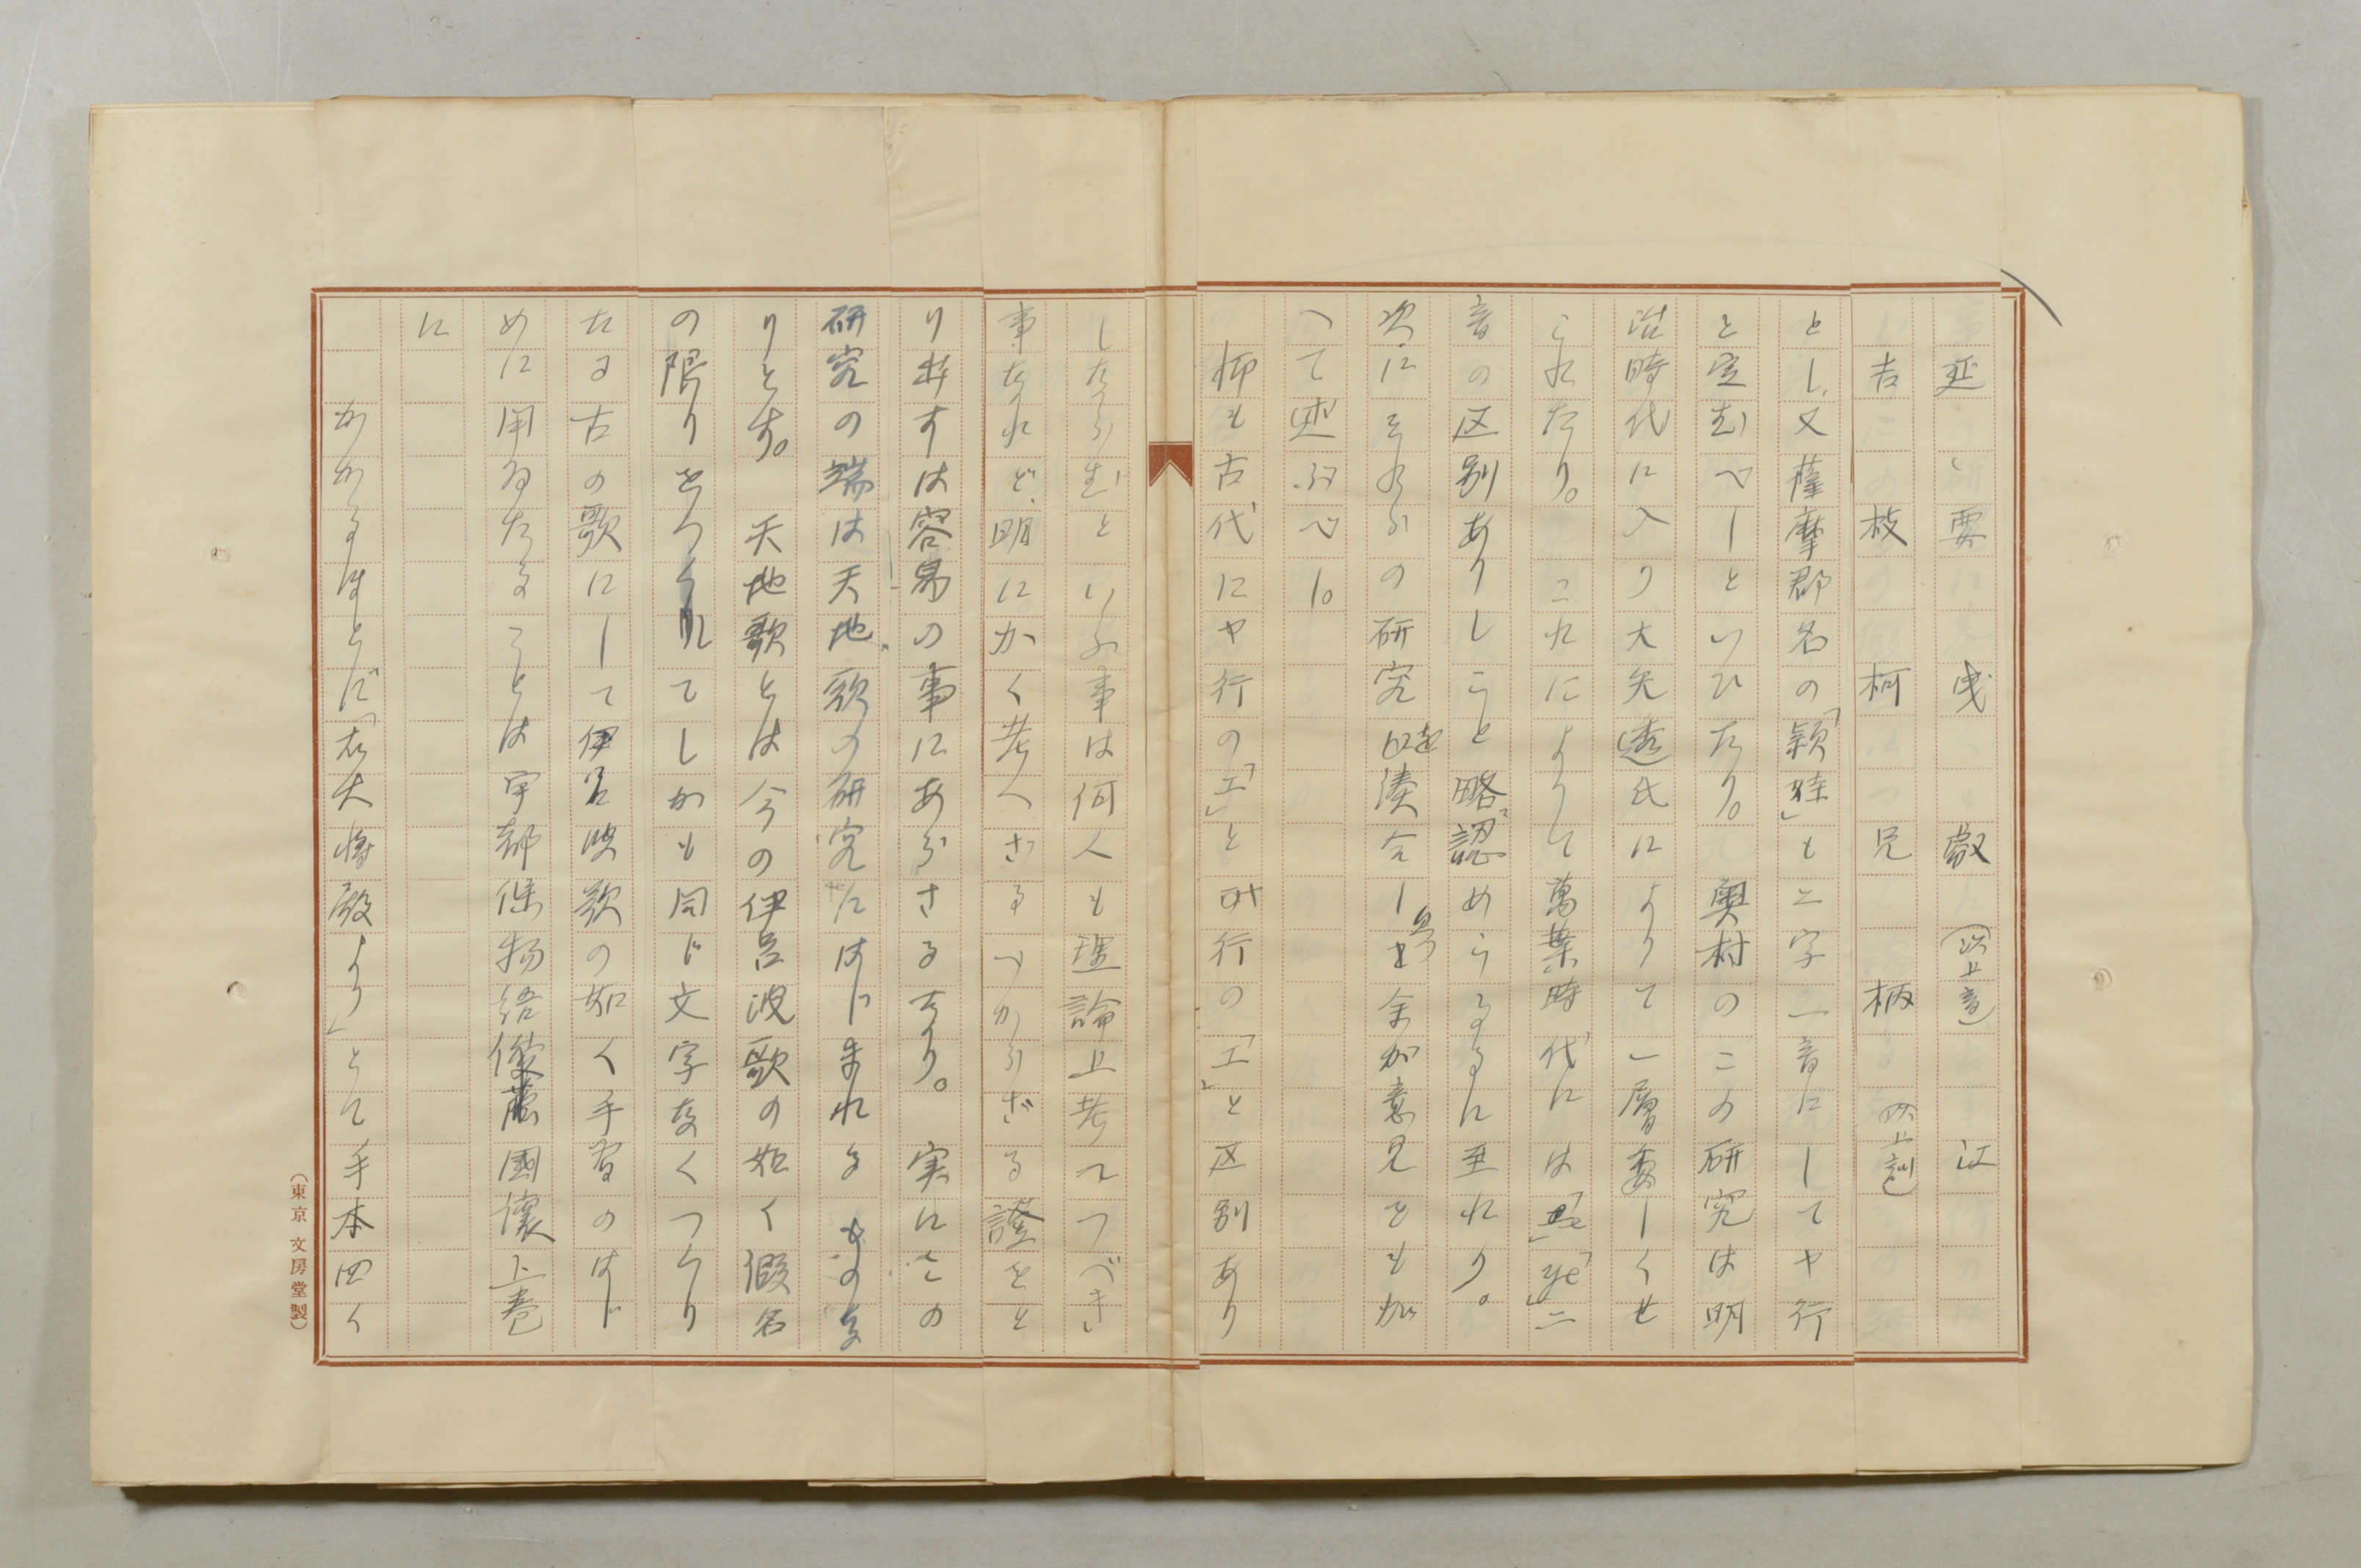 延 要 曵 叡 (以上音) 江
吉 枝 柯 兄 柄 (以上訓)
とし、又薩摩郡名の「頴娃」も二字一音にしてヤ行
と定むべしといひたり。 奥村のこの研究は明
治時代に入り大矢透氏によりて一層委しくせ
られたり。 これによりて萬葉時代には「e」「ye」二
音の区別ありしこと略認めらるるに至れり。
次にそれらの研究を湊合し 余が意見をも加
へて述ぶべし。
抑も古代にヤ行の「エ」とア行の「エ」と区別あり
したらむといふ事は何人も理論上考へつべき
事なれど、明にかく考へざるべからざる證をと
り出すは容易の事にあらざるなり。 実にこの
研究の端は天地歌の研究にはじまれるものな
りとす。 天地歌とは今の伊呂波歌の如く假名
の限りをつくしてしかも同じ文字なくつくり
たる古の歌にして伊呂波歌の如く手習のはじ
めに用ゐたることは宇都保物語俊蔭國讓上巻
に
かかるほどに「右大将殿より」とて手本四く
(東京 文房堂製)